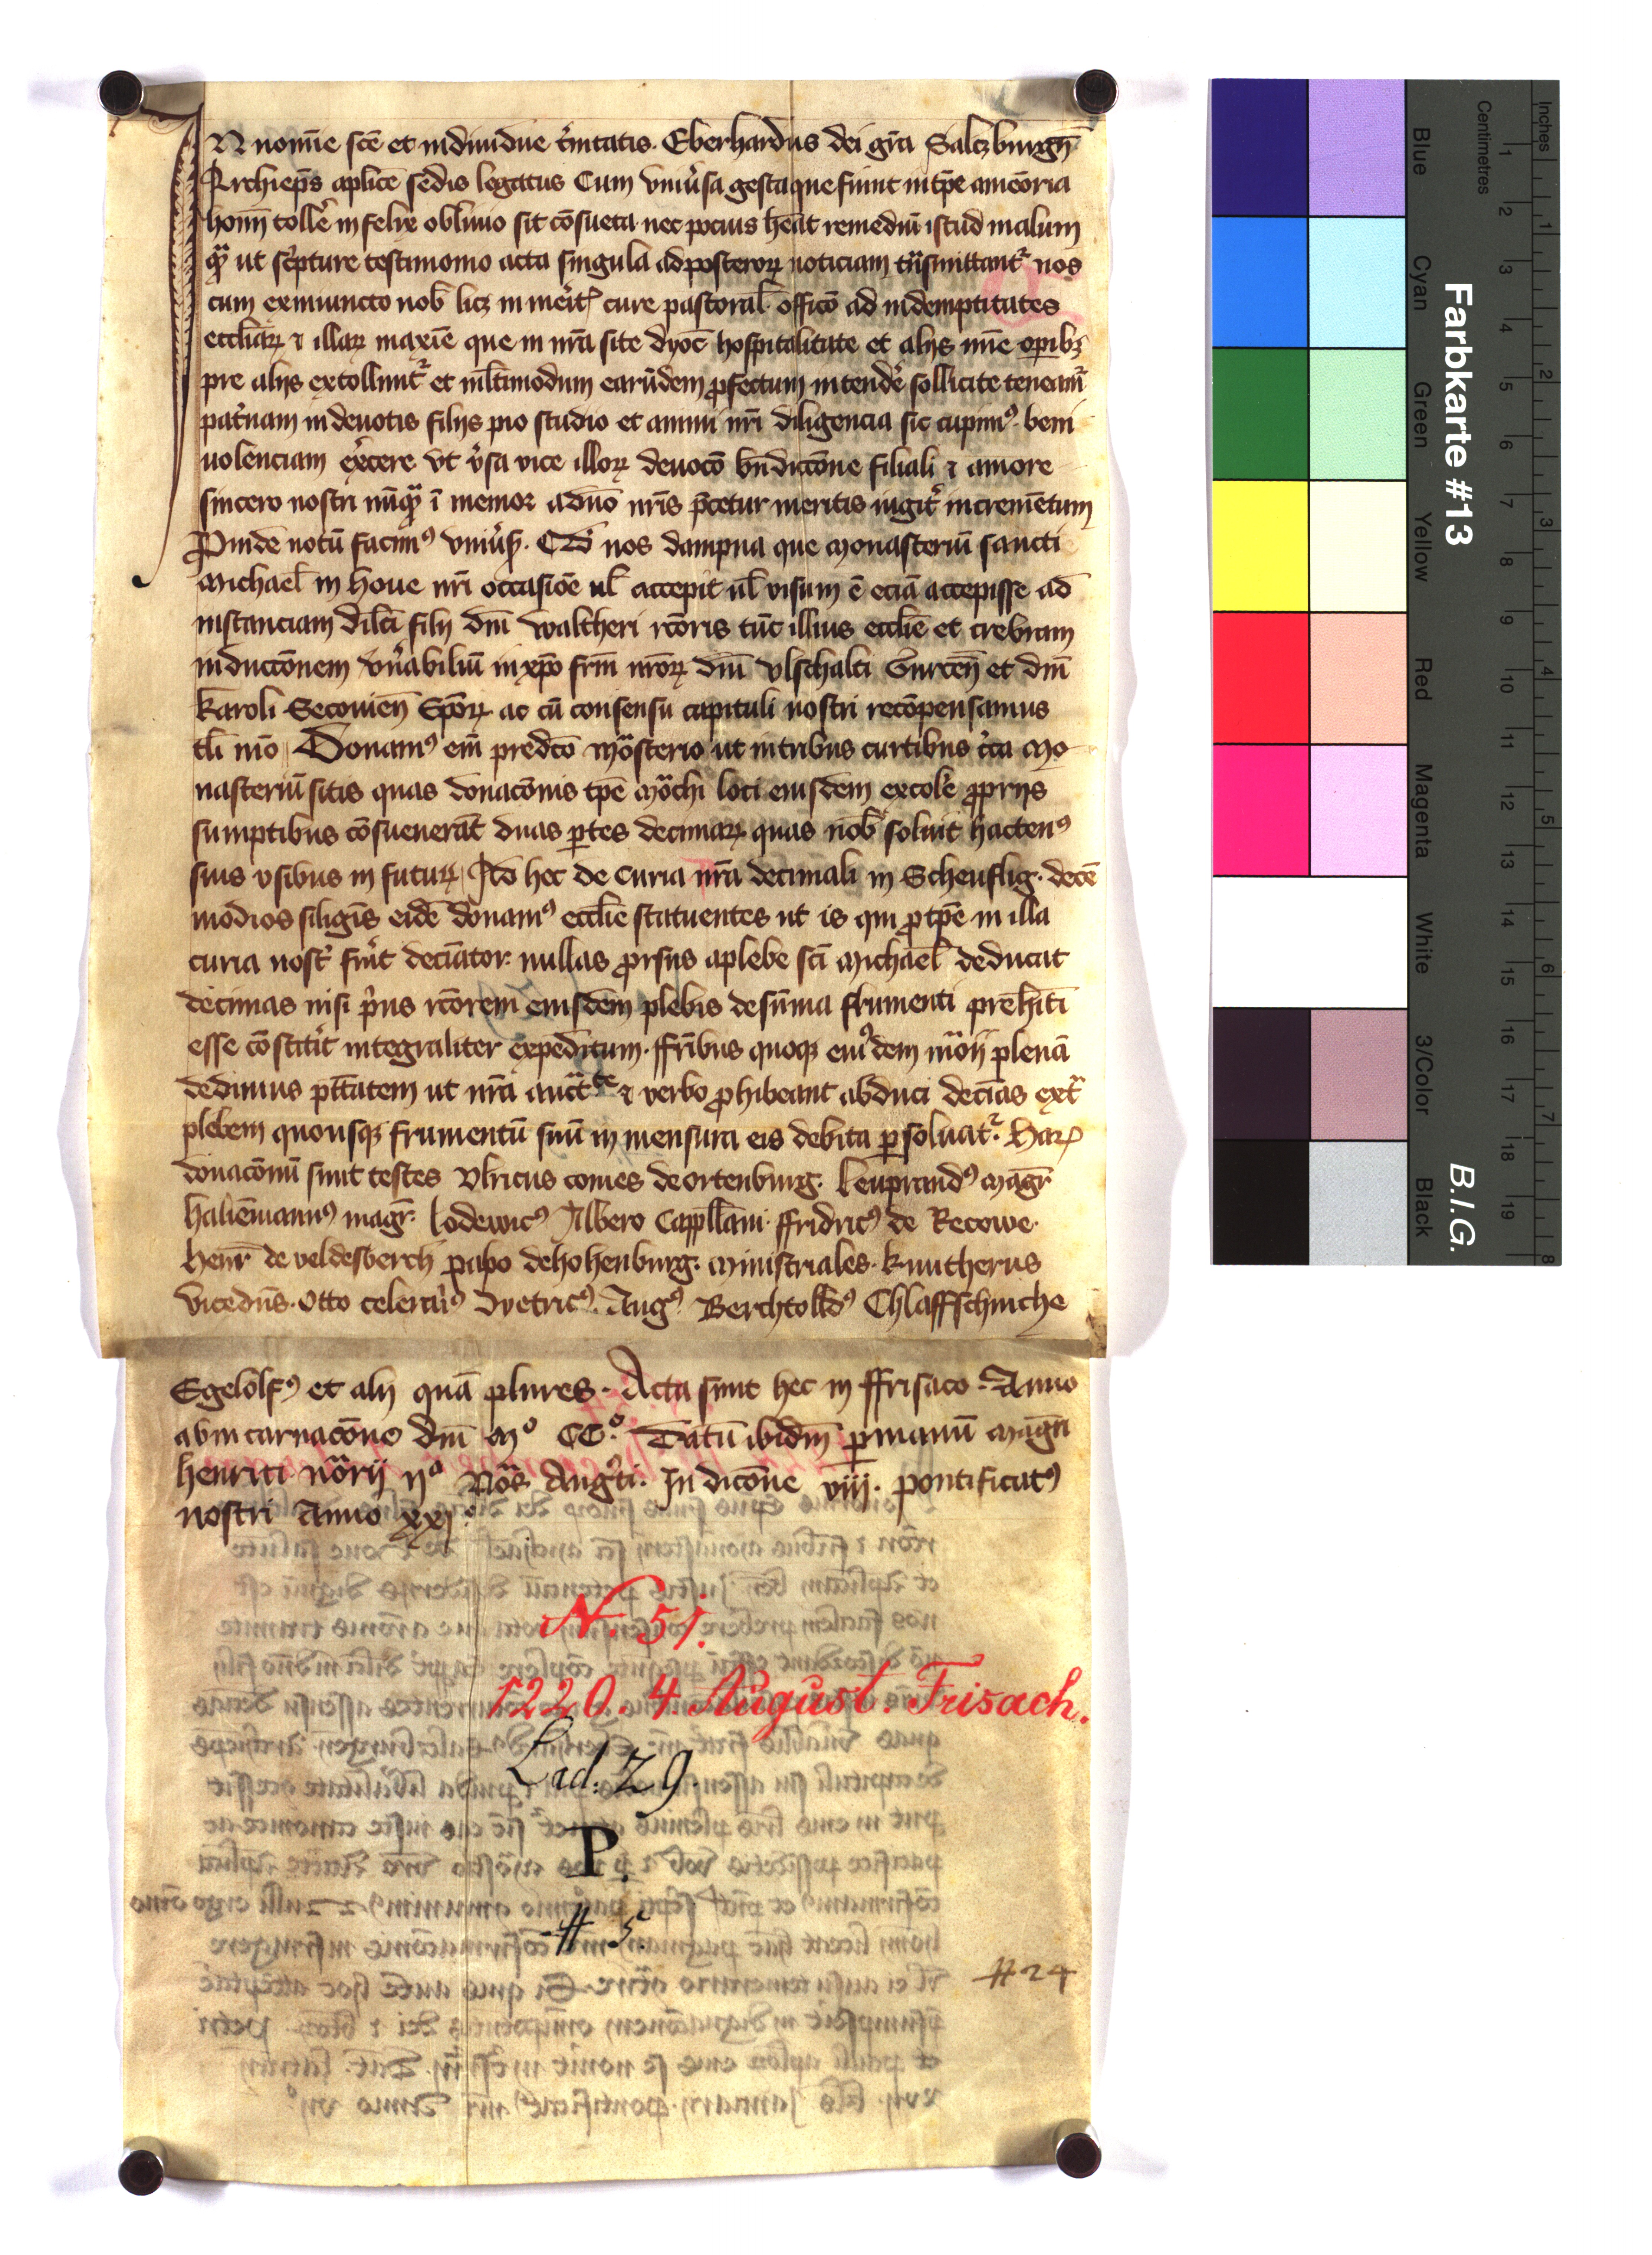 IN nomīe scē et indiuidue t̾initatis. Eberhardus dei gr̄a Salczburgn̄
Archiep̄s aplice sedis legatus Cum vniu̾sa gesta que fiunt in tp̄e a memoria
hoīm toll'e infelix obliuio sit cōsueta nec pocius heāt remediū istud malum
qͣ ut sc̾pture testimonio acta singula ad posterorꝝ noticiam tͣnsmittant᷑ nos
cum ex iniuncto nob̄ licꝫ inmer̾it᷑ cure pastoral̄ officō ad indemptitates
eccl̄iarꝝ ⁊ illarꝝ maxīe que in nr̄a site dyoc̄ hospitalitate et alijs mīe opibꝫ
pre alijs extollunt᷑ et ml̄timodum earūdem ꝓfectum intend'e sollicite teneam᷑
pat̾nam in deuotis filijs pio studio et animi nr̄i diligencia sic cupim⁹ beni
uolenciam ex̾cere vt v̾sa vice illorꝝ deuocō bn̄dictōne filiali ⁊ amore
sincero nostri nūqͣ īmemor aduō nr̄is p̄cetur meritis iugit̾ incremētum
Proinde notū facim⁹ vniu̾s. Qd̄ nos dampna que Monasteriū sancti
Michael̄ in Houe nr̄i occasiōe ul̄ accepit ul̄ visum ē eciā accepisse ad
instanciam dil̄ci filij dn̄i Waltheri rc̄oris tūc illius eccl̄ie et crebram
inductōnem vn̾abiliū in xp̄o fr̄m nr̄orꝝ dn̄i vlschalci Gurcen̄ et dn̄i
karoli Secouien̄ Ep̄orꝝ ac cū consensu capituli nostri recōpensamus
tl̄i mō Donam⁹ em̄ predc̄o mōsterio ut in tribus curtibus c̾ca Mo-
nasteriū sitis quas donacōnis tp̄e mōchi loci eiusdem excol'e ꝓprijs
sumptibus cōsueuerāt duas ꝑtes decimarꝝ quas nob̄ soluit hacten⁹
suis vsibus in futurꝝ Ad hec de Curia nr̄a decimali in Scheuflig. decē
modios siligīs eidē donam⁹ eccl̄ie statuentes ut is qui ꝓ tp̄e in illa
curia nost̾ fu̾it deciātor nullas ꝓrsus a plebe sc̄i Michael̄ deducat
decimas nisi p̾us rc̄orem eiusdem plebis de sūma frumenti prehīti
esse cōstit̾it integraliter expeditum. ffr̄ibus quoqꝫ eiu⁹dem mōrij plenā
dedimus pt̄tatem ut nr̄a auctᵗᵉ ⁊ verbo ꝓhibeant abduci deciās ext̾
plebem quousqꝫ frumentū suū in mensura eis debita ꝑsoluat᷑. Harꝝ
donacōnū sunt testes Vlricus comes de Ortenburg. Leuprand⁹ magr̄
haliēmann⁹ magr̄. Lodewic⁹ Albero Cappll̄ani. ffridric⁹ de Recowe.
Henr̄ de veldesberch papo de hohenburg. ministriales. kuntherus
Vicedn̄s. Otto celerari⁹ Dyetric⁹. Aug⁹ Berchtold⁹ Chlaffschinche
Egelolf⁹ et alij quā plures. Acta sunt hec in ffrisaco. Anno
ab incarnacōne dn̄i Mº CCº. Datū ibidm̄ ꝑ manū Magr̄i
henrici nōrij ijª Nōs Aug⁹ti. Indicōne viij. pontificat⁹
nostri Anno xxj.º
N. 51.
1220. 4. August. Frisach.
Lad: 29.
P.
# 5.
# 24